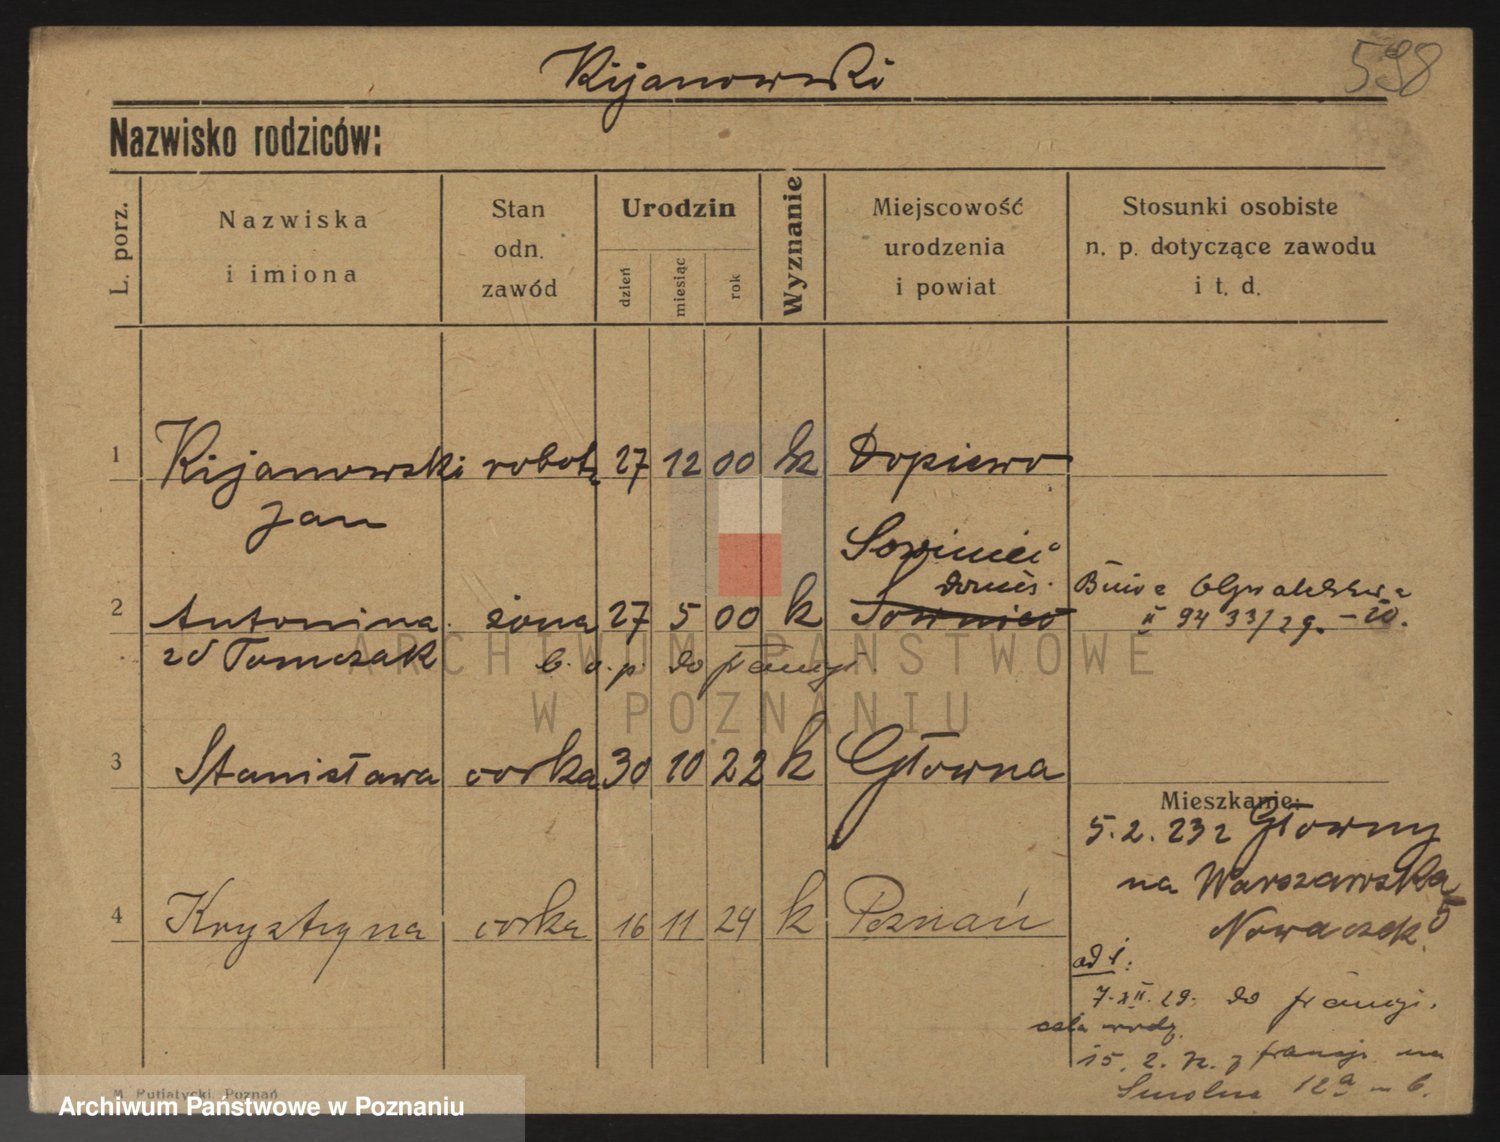 Kijanowski
598
Nazwisko rodziców:
L. porz.
Nazwiska
i imiona
Stan
odn.
zawód
Urodzin
dzień
miesiąc
rok
Wyznanie
Miejscowość
urodzenia
i powiat
Stosunki osobiste
n. p. dotyczące zawodu
i t. d.
1 Kijanowski robot. 27 12 00 k Dopiewo
Jan
Sowiniec
2 Antonina żona 27 5 00 k Sowiniec
II 94 33/29.
zd Tomczak b. o. p. do francji.
3 Stanisława corka 30 10 22 k Głowna
Mieszkanie:
5.2.23 z Głowny
na Warszawska
5
Nowaczek
4 Krystyna corka 16 11 24 k Poznań
od 1:
7.XII.29. do francji.
cała rodz.
15. 2. 32. z francji na
Smolna 12a
M. Putiatycki, Poznań
ARCHIWUM PAŃSTWOWE
W POZNANIU
Archiwum Państwowe w Poznaniu